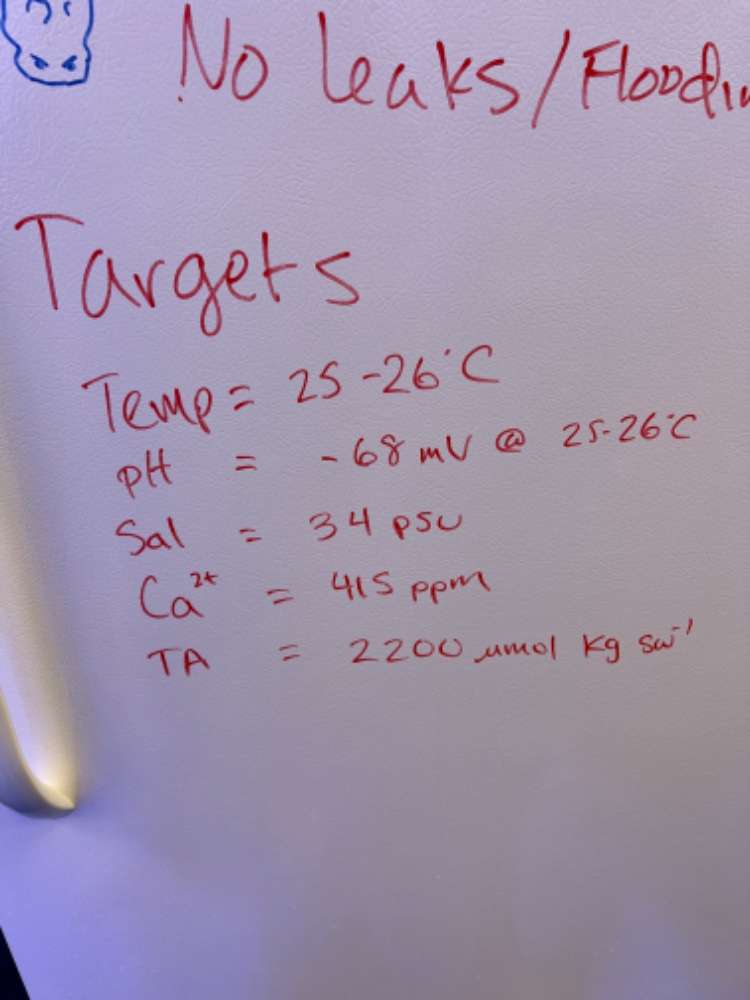 No leaks/Floodin
Targets
Temp = 25-26°C
pH = -68 mV @ 25-26°C
Sal = 34 psu
Ca²⁺ = 415 ppm
TA = 2200 umol kg sw⁻¹